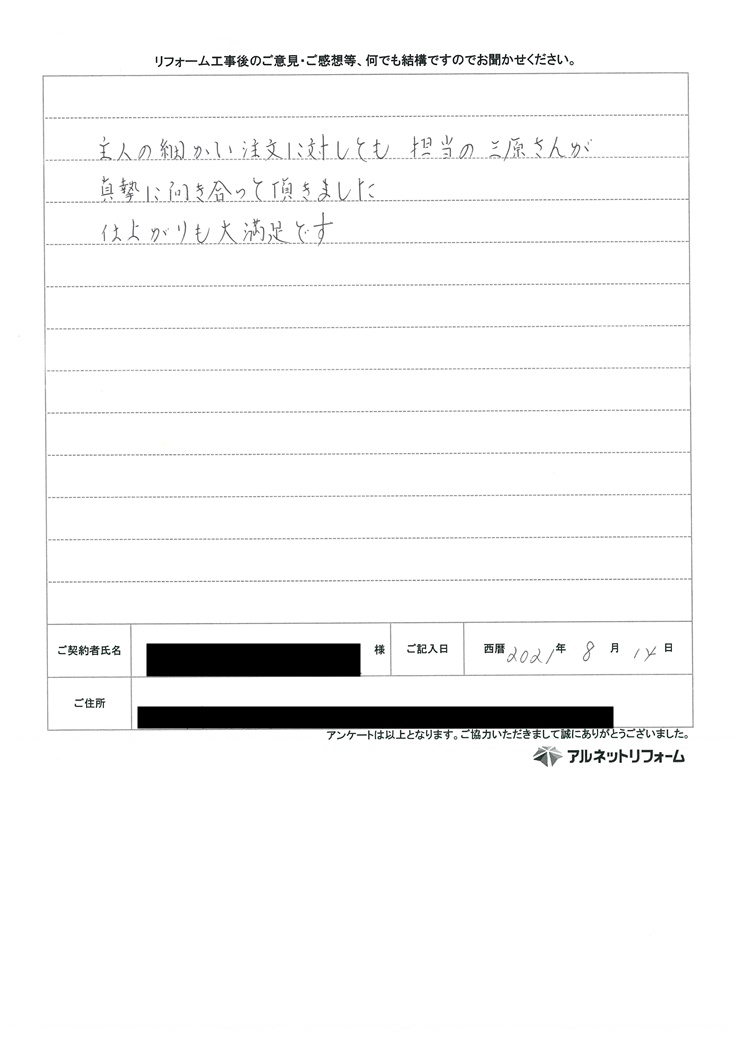 リフォーム工事後のご意見・ご感想等、何でも結構ですのでお聞かせください。
主人の細かい注文に対しても 担当の三原さんが
真摯に向き合って頂きました
仕上がりも大満足です
ご契約者氏名 様 ご記入日 西暦2021年 8月 14日
ご住所
アンケートは以上となります。ご協力いただきまして誠にありがとうございました。
アルネットリフォーム